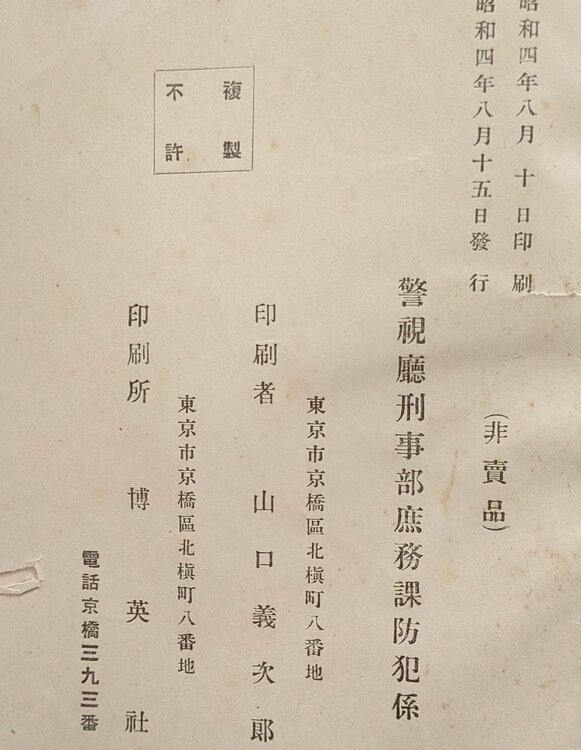 昭和四年八月十日印刷
昭和四年八月十五日發行
(非賣品)
警視廳刑事部庶務課防犯係
東京市京橋區北槇町八番地
印刷者 山口義次郎
東京市京橋區北槇町八番地
印刷所 博英社
電話京橋三九三番
複製
不許